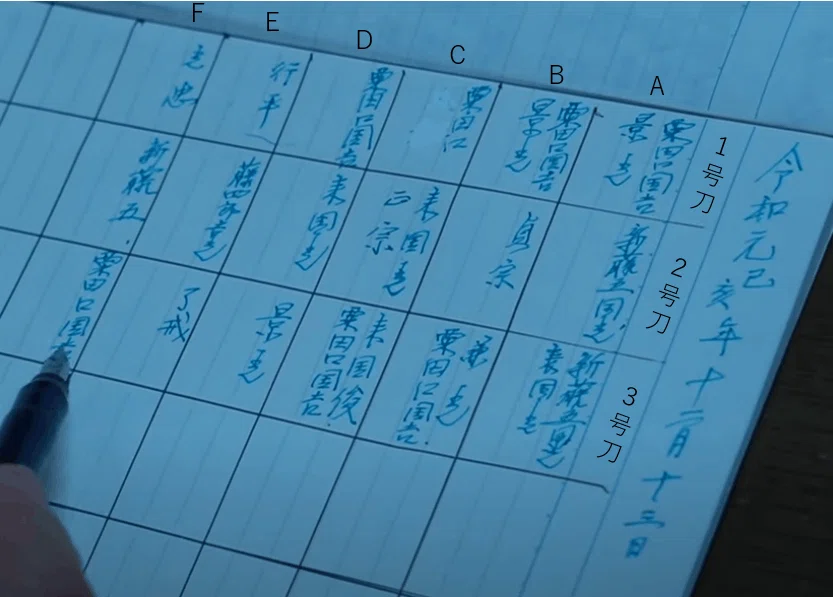 A
B
C
D
E
F
令和元己亥年十二月十三日
1号刀
2号刀
3号刀
粟田口国吉
景光
新藤五国光
新藤五
来国光
粟田口国吉
景光
貞宗
兼光
粟田口国吉
粟田口
来国光
正宗
来国俊
粟田口国吉
粟田口国吉
来国光
景光
行平
藤四郎吉光
了戒
光忠
新藤五
粟田口国吉